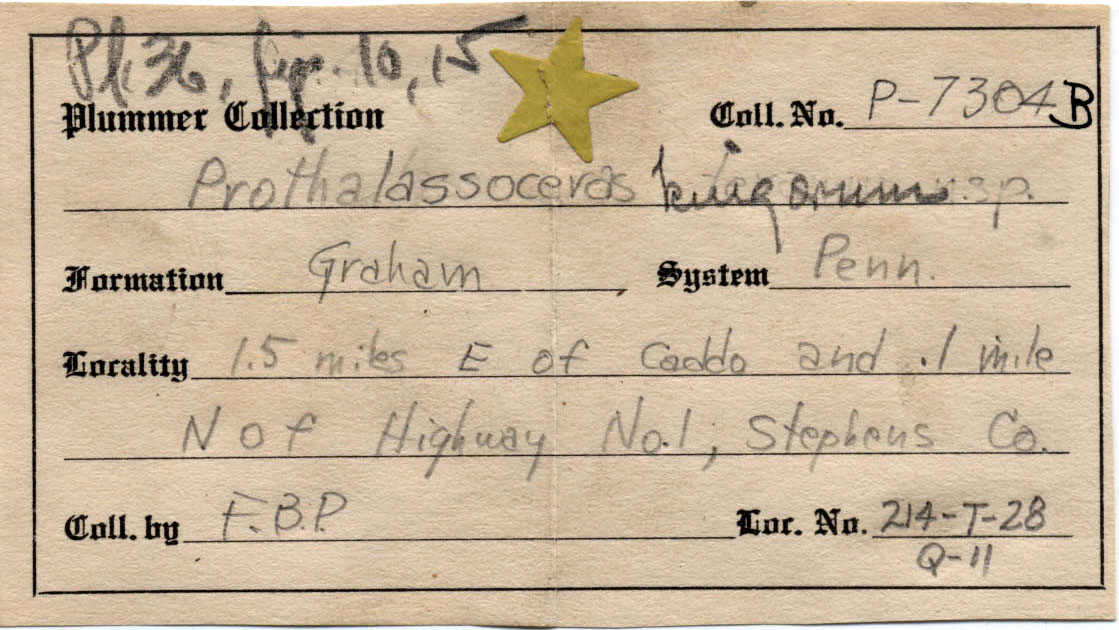 Pl. 36, fig. 10, 15
Plummer Collection Coll. No. P-7304B
Prothalassoceras kingorum n. sp.
Formation Graham System Penn.
Locality 1.5 miles E of Caddo and .1 mile
N of Highway No. 1, Stephens Co.
Coll. by F.B.P. Loc. No. 214-T-28
Q-11